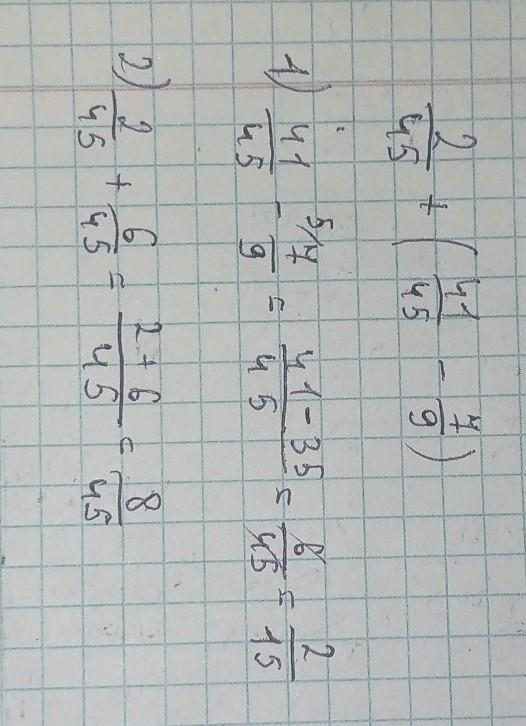 2/45 + (41/45 - 7/9)
1) 41/45 - 5/7/9 = 41-35/45 = 6/45 = 2/15
2) 2/45 + 6/45 = 2+6/45 = 8/45